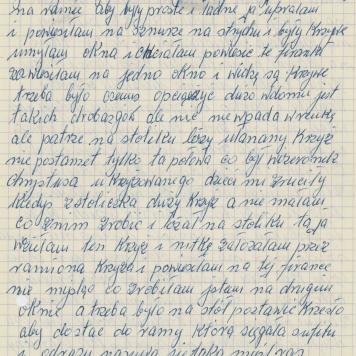 na ramie aby były proste i ładne ja uprałam
i powiesiłam na sznurze na strychu i były krzywe
umyłam okna i chciałam powiesić te firanki
zawiesiłam na jedno okno i widzę są krzywe
trzeba było czemś obciążyć dużo w domu jest
takich drobazgów ale nic nie wpada w rękę
ale patrze na stoliku leży ułamany krzyż
nie postament tylko ta połowa co był wizerunek
chrystusa ukrzyżowanego dzieci mi zruciły
kiedyś z stoliczka duży krzyż a nie miałam
co z nim zrobić i leżał na stoliku ta ja
wzięłam ten krzyż i nitkę założyłam przez
ramiona krzyża i powiesiłam na tej firance
nie myśląc co zrobiłam jestem na drugim
oknie a trzeba było na stół postawić krzesło
aby dostać do ramy która sięgała sufitu
i odrazu